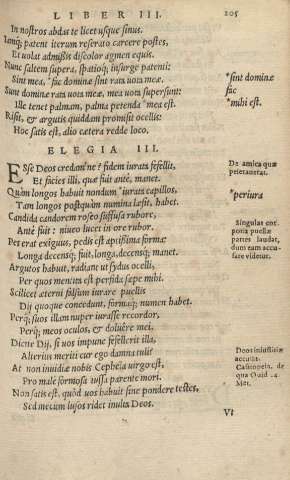 LIBER III. 205
In nostros abdas te licet usque sinus.
Iamq; patent iterum reserato carcere postes,
Et volat admissis discolor agmen equis.
Nunc saltem supera, spatioq; insurge patenti:
Sint mea, *fuc dominæ sint rata uota meæ.
Sunt dominæ rata uota meæ, mea uota supersunt:
Ille tenet palmam, palma petenda *mea est.
Risit, & argutis quiddam promisit ocellis:
Hoc satis est, alio cætera redde loco.
*sint dominæ
fuc
*mihi est.
ELEGIA III.
ESse Deos credamne? fidem iurata fefellit,
Et facies illi, quæ fuit antè, manet.
Quàm longos habuit nondum *iurata capillos,
Tam longos postquàm numina læsit, habet.
Candida candorem roseo suffusa rubore,
Antè fuit: niueo lucet in ore rubor.
Pes erat exiguus, pedis est aptissima formæ
Longa decensq; fuit, longa, decensq; manet.
Argutos habuit, radiant ut sydus ocelli,
Per quos mentita est perfida sæpe mihi.
Scilicet æterni falsum iurare puellis
Dij quoque concedunt, formaq; numen habet.
Perq; suos illam nuper iurasse recordor,
Perq; meos oculos, & doluêre mei.
Dicite Dij, si uos impune fefellerit illa,
Alterius meriti cur ego damna tuli?
At non inuidiæ nobis Cepheia uirgo est,
Pro male formosa iussa parente mori.
Non satis est, quòd uos habui sine pondere testes,
Sed mecum lusos ridet inulta Deos.
De amica quæ
peierauerat.
*periura
Singulas enim
puellæ
partes laudat,
dum eam accu-
sare videtur.
Deos iniustitiæ
accusat.
Cassiopeia, de
qua Ouid. 4.
Met.
Vt